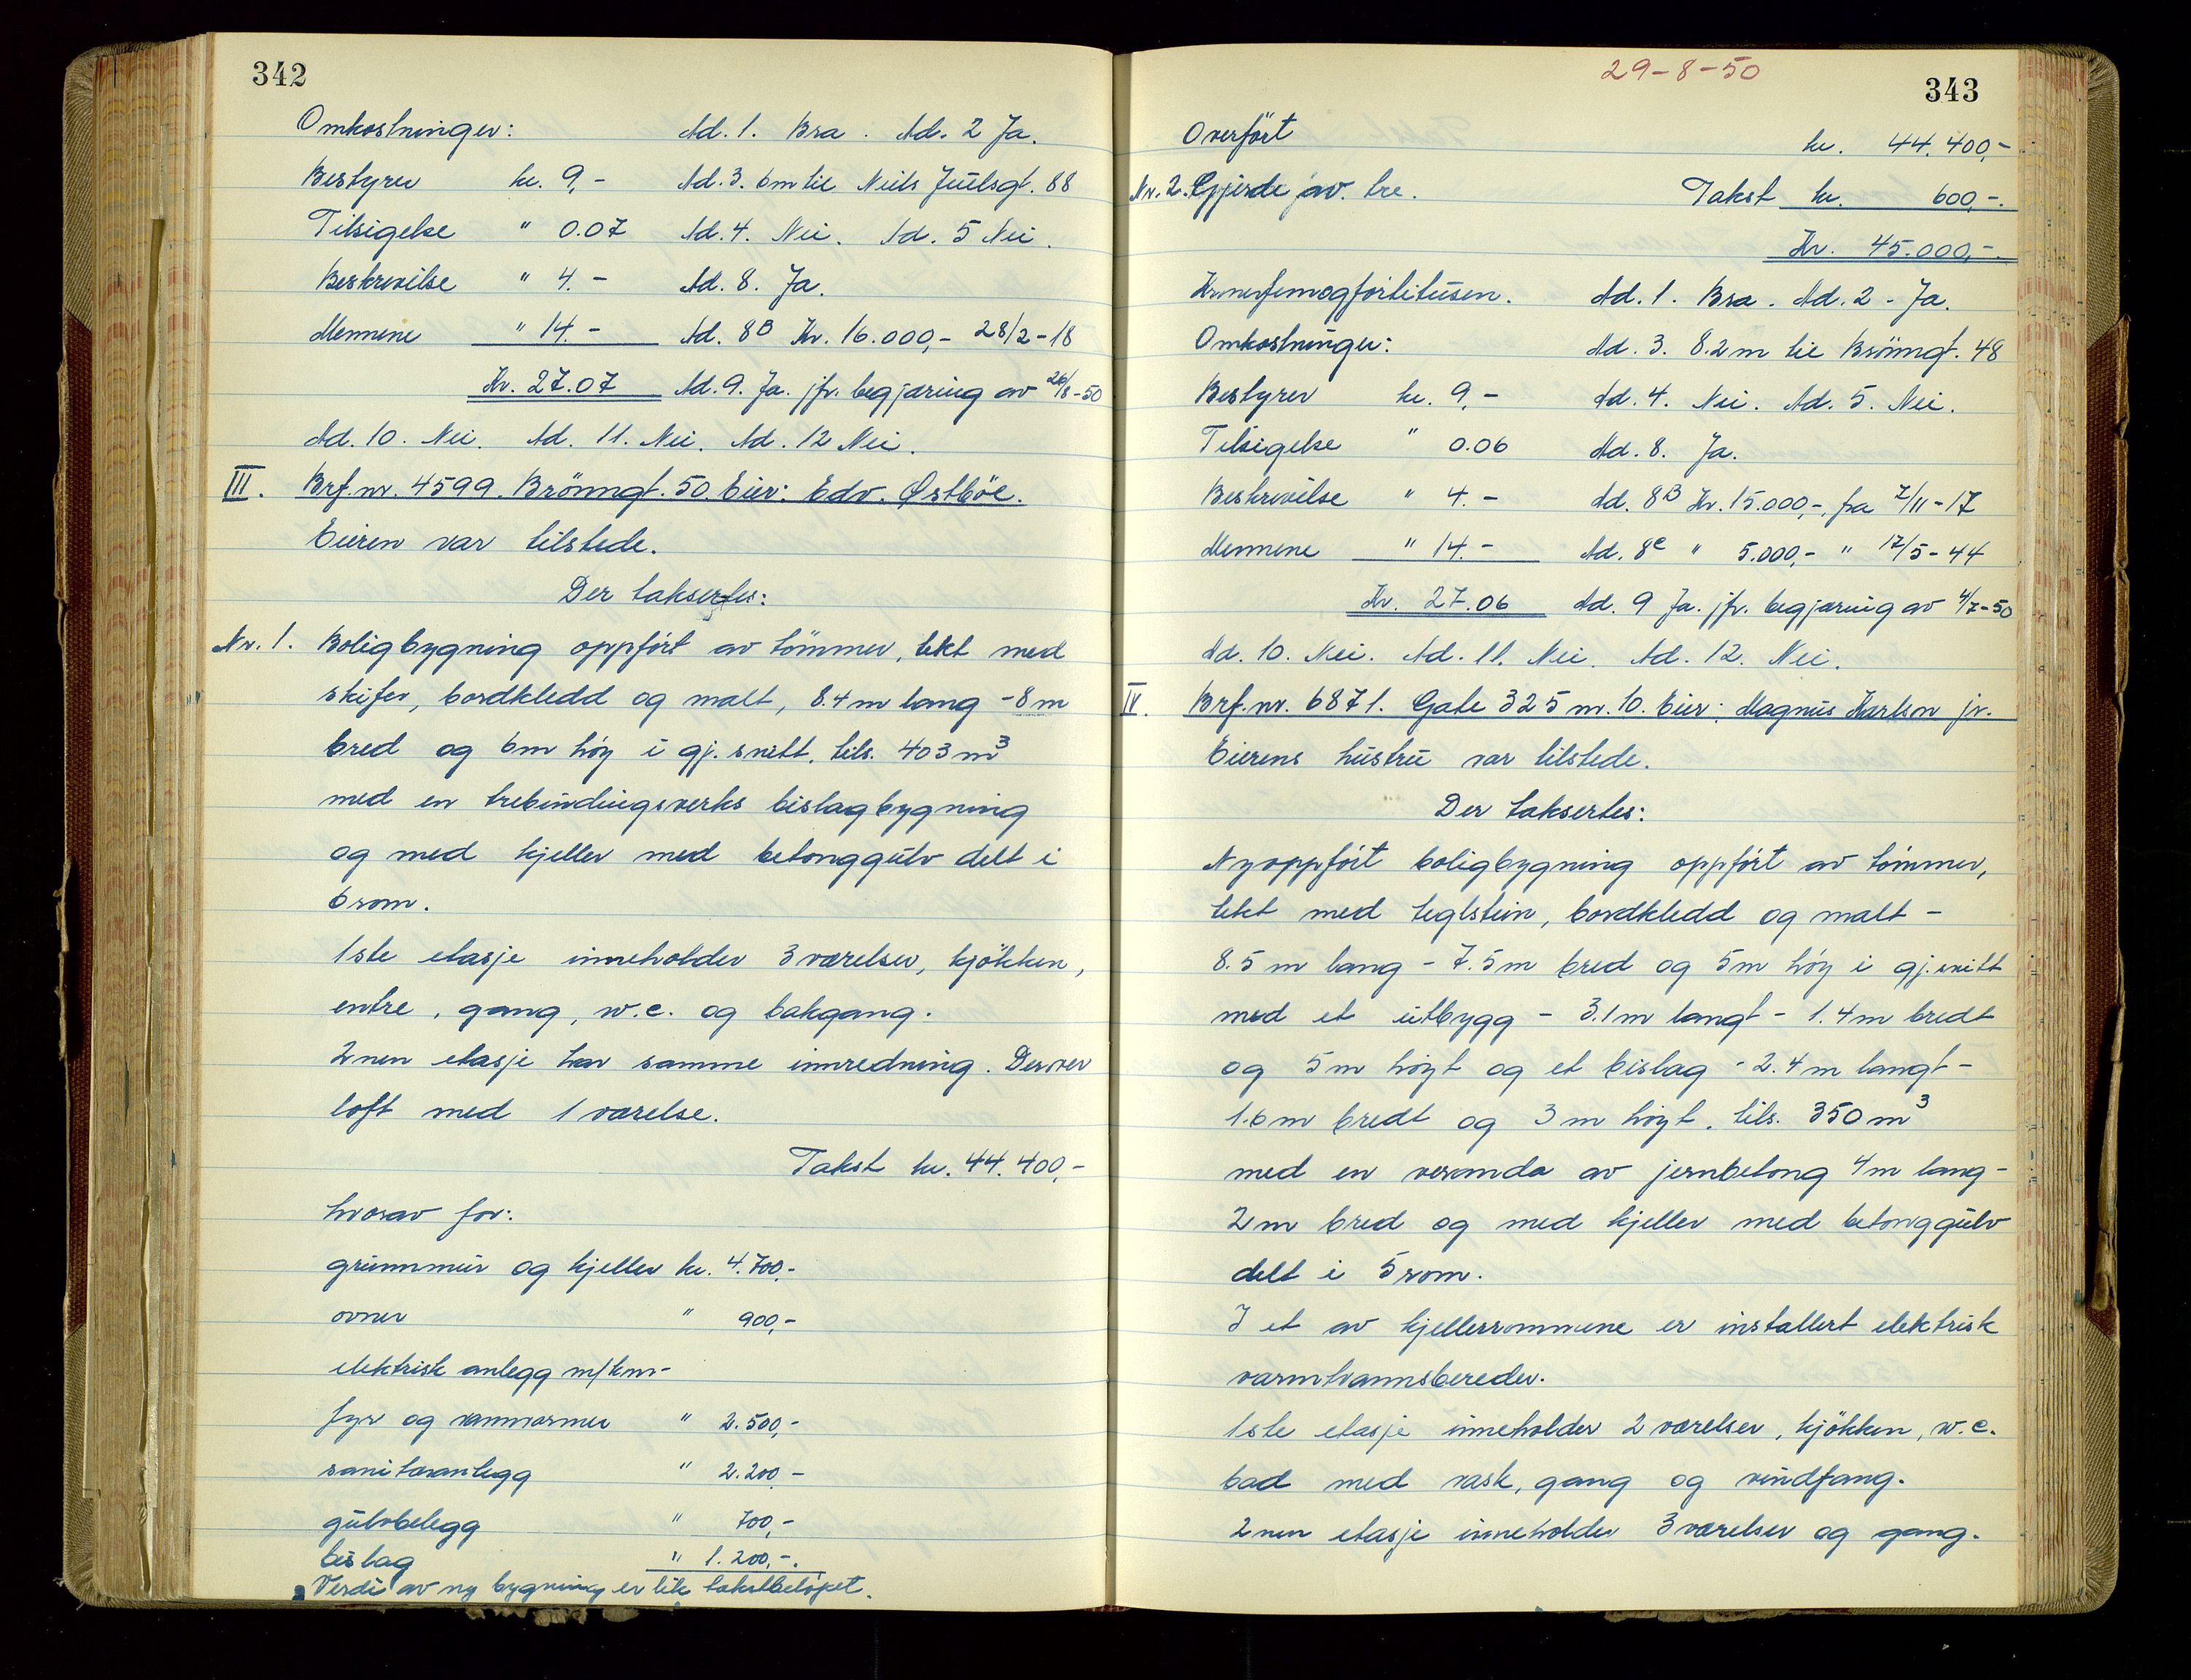 342
Omkostninger: Ad. 1. Bra. Ad. 2 Ja.
Bestyrer kr. 9,- Ad. 3. 6m til Neils Juulsgt. 88
Tilsigelse " 0.07 Ad. 4. Nei. Ad. 5 Nei.
Beskrivelse " 4.- Ad. 8. Ja.
Mennene " 14.- Ad. 8B Kr. 16.000,- 28/2-18
Kr. 27.07 Ad. 9. Ja. jfr. begjæring av 26/8-50
Ad. 10. Nei. Ad. 11. Nei. Ad. 12 Nei.
III. Brf. nr. 4599. Brönngt. 50. Eier: Edv. Østböe.
Eieren var tilstede.
Der taksertes:
Nr. 1. Boligbygning oppfört av tömmer, tekt med
skifer, bordkledd og malt, 8.4 m lang - 8 m
bred og 6m höy i gj. snitt, tils. 403 m3
med en trebindingsverks bislagbygning
og med kjeller med betonggulv delt i
6 rom.
1ste etasje inneholder 3 værelser, kjökken,
entre, gang, w.c. og bakgang.
2nen etasje har samme innredning. Derover
loft med 1 værelse.
Takst kr. 44.400,-
hvorav for:
grunnmur og kjeller kr. 4.700,-
ovner " 900,-
elektrisk anlegg m/kom-
fyr og vannvarmer " 2.500,-
sanitæranlegg " 2.200,-
gulvbelegg " 700,-
bislag " 1.200,-.
Verdi av ny bygning er lik takstbelöpet.
29-8-50
343
Overfört kr. 44.400,-
Nr. 2. Gjerde av tre. Takst kr. 600,-.
Kr. 45.000,-.
Kronerfemogförtitusen. Ad. 1. Bra. Ad. 2 - Ja.
Omkostninger: Ad. 3. 8.2 m til Brönngt. 48
Bestyrer kr. 9,- Ad. 4. Nei. Ad. 5. Nei.
Tilsigelse " 0.06 Ad. 8. Ja.
Beskrivelse " 4.- Ad. 8B Kr. 15.000,-, fra 7/11-17
Mennene " 14.- Ad. 8c " 5.000,- " 12/5-44
Kr. 27.06 Ad. 9 Ja. jfr. begjæring av 4/7-50
Ad. 10. Nei. Ad. 11. Nei. Ad. 12. Nei.
IV. Brf. nr. 6871. Gate 325 nr. 10. Eier: Magnus Karlson jr.
Eierens hustru var tilstede.
Der taksertes:
Nyoppfört boligbygning oppfört av tömmer,
tekt med teglstein, bordkledd og malt -
8.5 m lang - 7.5m bred og 5m höy i gj. snitt
med et utbygg - 3.1m langt - 1.4m bredt
og 5m höyt og et bislag - 2.4 m langt -
1.6m bredt og 3 m höyt, tils. 350 m3
med en veranda av jernbetong 4m lang -
2m bred og med kjeller med betonggulv
delt i 5 rom.
I et av kjellerrommene er installert elektrisk
varmtvannsbereder.
1ste etasje inneholder 2 værelser, kjökken, w.c.
bad med vask, gang og vindfang.
2nen etasje inneholder 3 værelser og gang.